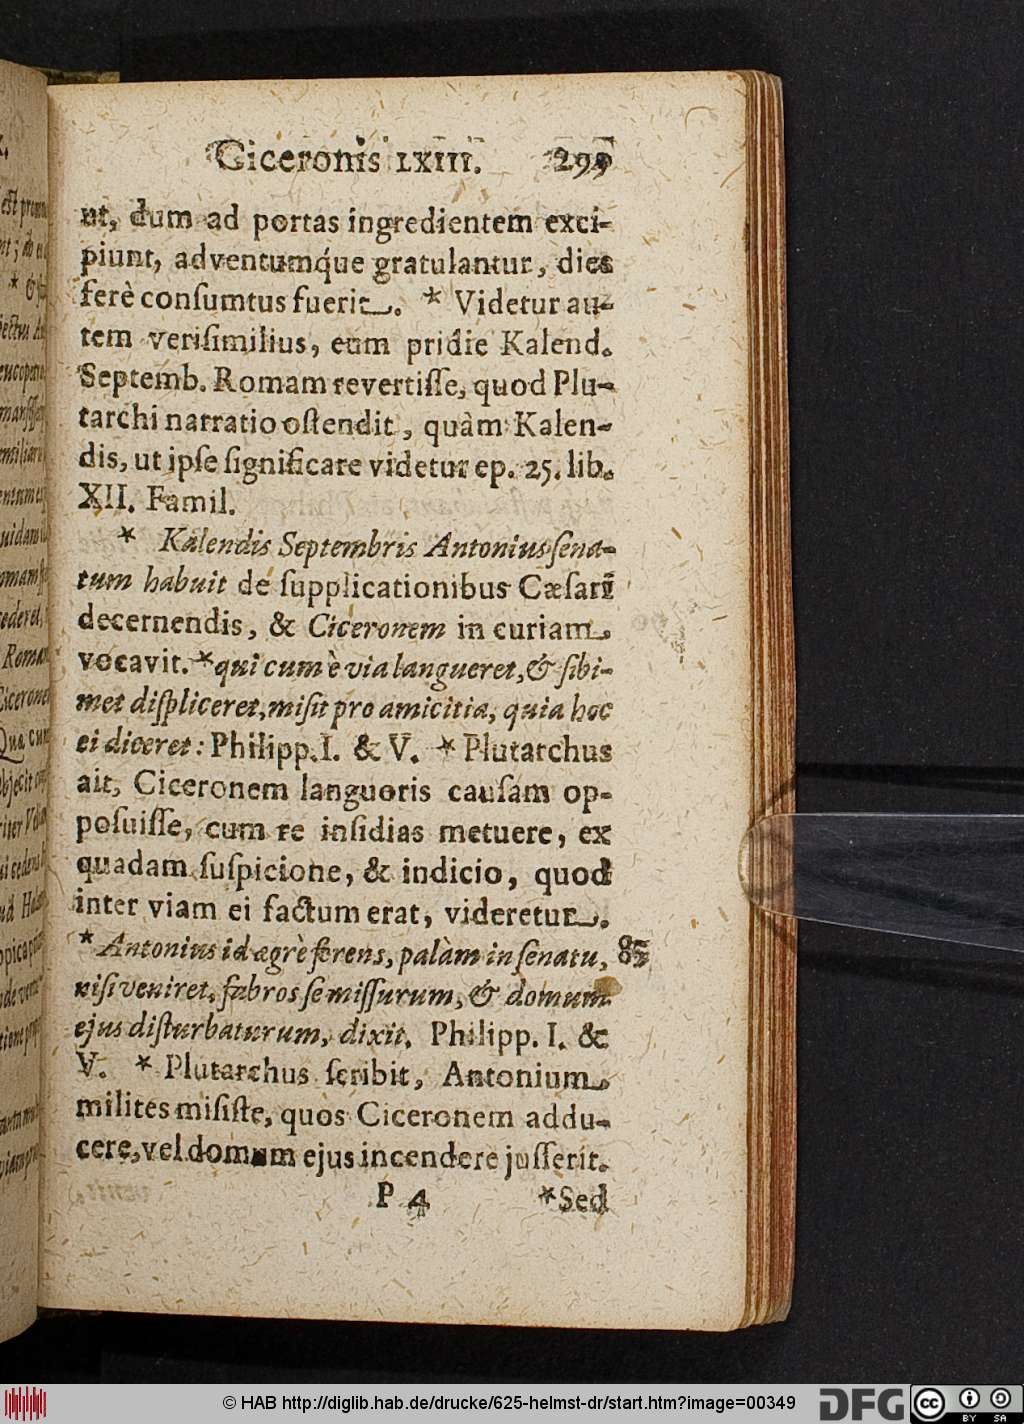 Ciceronis LXIII. 299
ut, dum ad portas ingredientem exci-
piunt, adventumq́ue gratulantur, dies
ferè conſumtus fuerit. * Videtur au-
tem veriſimilius, eum pridie Kalend.
Septemb. Romam revertiſſe, quod Plu-
tarchi narratio oſtendit, quàm Kalen-
dis, ut ipſe ſignificare videtur ep. 25. lib.
XII. Famil.
* Kalendis Septembris Antonius ſena-
tum habuit de ſupplicationibus Cæſari
decernendis, & Ciceronem in curiam
vocavit. * qui cum è via langueret, & ſibi-
met diſpliceret, miſit pro amicitia, quia hoc
ei diceret: Philipp. I. & V. * Plutarchus
ait, Ciceronem languoris cauſam op-
poſuiſſe, cum re inſidias metuere, ex
quadam ſuſpicione, & indicio, quod
inter viam ei factum erat, videretur.
* Antonius id ægrè ferens, palàm in ſenatu, 85
niſi veniret, fabros ſe miſſurum, & domum
ejus diſturbaturum, dixit. Philipp. I. &
V. * Plutarchus ſcribit, Antonium
milites miſiſte, quos Ciceronem addu-
cere, vel domum ejus incendere juſſerit.
P 4 *Sed
© HAB http://diglib.hab.de/drucke/625-helmst-dr/start.htm?image=00349 DFG cc BY SA